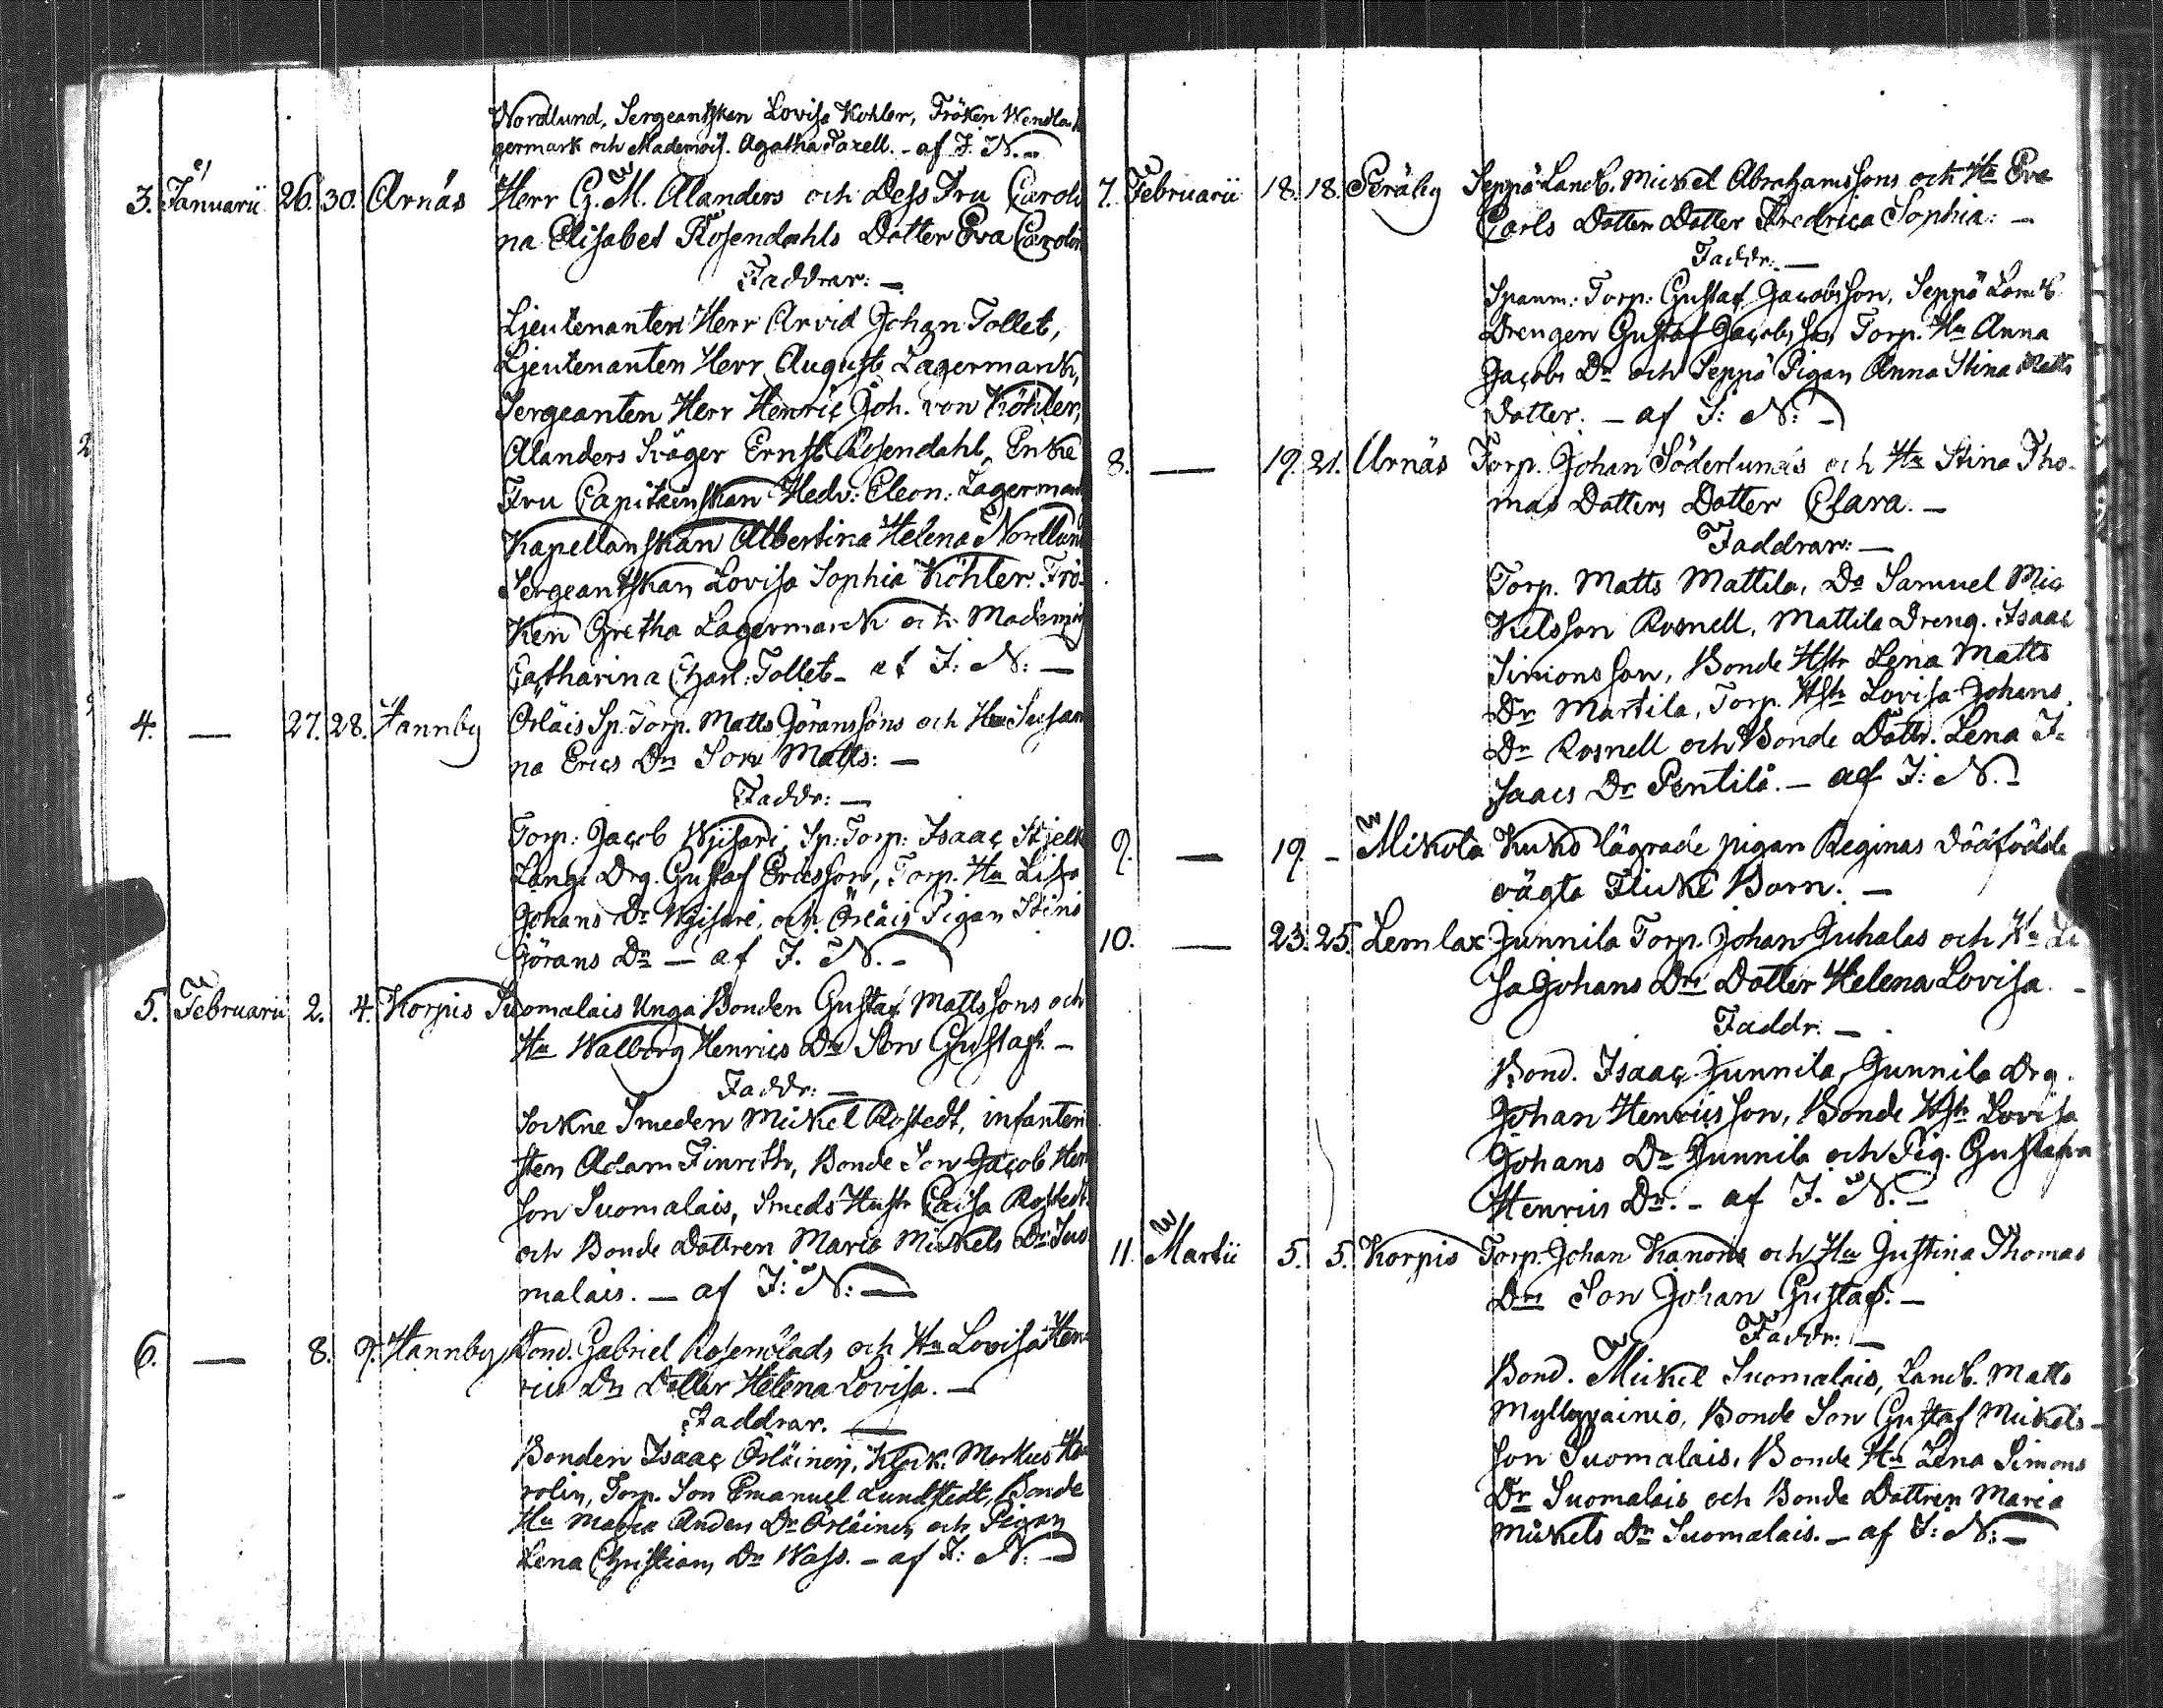 Nordlund, Sergeantskan Lovisa Kohler, Fröken Wendla
germark och Mademois. Agatha Taxell. - af J. N. -
3. Januarii 26. 30. Arnäs Herr G. M. Alanders och Dess Fru Caroli
na Elisabet Rosendahls Dotter Eva Carolin
Faddrar: -
Ljeutenanten Herr Arvid Johan Tollet,
Ljeutenanten Herr August Lagermarck,
Sergeanten Herr Henric Joh. von Köhler,
Alanders Svåger Ernst Rosendahl, Enke
Fru Capitainskan Hedv: Eleon: Lagerman
Kapellanskan Albertina Helena Nordlund
Sergeantskan Lovisa Sophia Köhler. Frö-
ken Gretha Lagermarck och Mademois
Catharina Charl: Tollet - af J: N: -
4. — 27. 28. Hannby Örläis Sp. Torp. Matts Göranssons och Hu Susan
na Erics Drs Son Matts: -
Faddr: -
Torp: Jacob Wijsari, Sp: Torp: Isaac
Lång, Drg. Gustaf Ericsson, Torp. Hu Lisa
Johans Dr Wijsari, och Örläis Pigan Stina
Görans Dr - af J. N. -
5. Februarii 2. 4. Korpis Suomalais Unga Bonden Gustaf Mattssons och
Hu Walborg Henrics Drs Son Gustaf. -
Faddr: -
Sockne Smeden Mickel Rostedt, infanteri
sten Adam Finrith, Bonde Son Jacob Hen
son Suomalais, Smeds Hustr Caisa Rostedt
och Bonde Dottren Maria Mickels Dr Suo
malais. - af J: N: -
6. — 8. 9. Hannby Bond. Gabriel Rosenblads och Hu Lovisa Hen
rics Drs Dotter Helena Lovisa. -
Faddrar. -
Bonden Isaac Örläinen, Klock. Markus
rolin, Torp. Son Emanuel Lundstedt, Bonde
Hu Maria Anders Dr Örläinen och Pigan
Lena Christians Dr Wass. - af J: N: -
7. Februarii 18. 18. Peräby Seppä Landb. Mickel Abrahamssons och Hu Eva
Carls Dotters Dotter Fredrica Sophia: -
Faddr: -
Spanm: Torp: Gustaf Jacobsson, Seppä Landb.
Drengen Gustaf Jacobsson Torp. Hu Anna
Jacobs Dr och Seppä Pigan Anna Stina Matts
Dotter. - af J: N: -
8. — 19. 21. Arnäs Torp. Johan Söderlunds och Hu Stina Tho-
mas Dotters Dotter Clara. -
Faddrar: -
Torp. Matts Mattila, Do Samuel Mic
kelsson Rosnell, Mattila Dreng. Isaac
Simonsson, Bonde Hstr Lena Matts
Dr Martila, Torp. Hstr Lovisa Johans
Dr Rosnell och Bonde Dottr. Lena I-
saacs Dr Pentilä. - af J: N. -
9. — 19. - Mikola Kuko lägrade pigan Reginas dödfödda
oägta Flicke Barn. -
10. — 23. 25. Lemlax Junnila Torp. Johan Juhalas och Hu Li
sa Johans Drs Dotter Helena Lovisa. -
Faddr. -
Bond. Isaac Junnila, Junnila Drg.
Johan Henricsson, Bonde Hstr Lovisa
Johans Dr Junnila och Pig. Gustafva
Henrics Dr. - af J. N. -
11. Martii 5. 5. Korpis Torp. Johan Kanons och Hu Justina Thomas
Drs Son Johan Gustaf. -
Faddr: -
Bond. Mickel Suomalais, Landb. Matts
Myllyväiniö, Bonde Son Gustaf Mickels-
son Suomalais, Bonde Hu Lena Simons
Dr Suomalais och Bonde Dottren Maria
Mickels Dr Suomalais. - af J: N: -